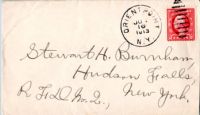 ORIENT POINT
10
1913
N.Y.
Stewart H. Burnham
Hudson Falls,
R.F.D. No. 2, New York.